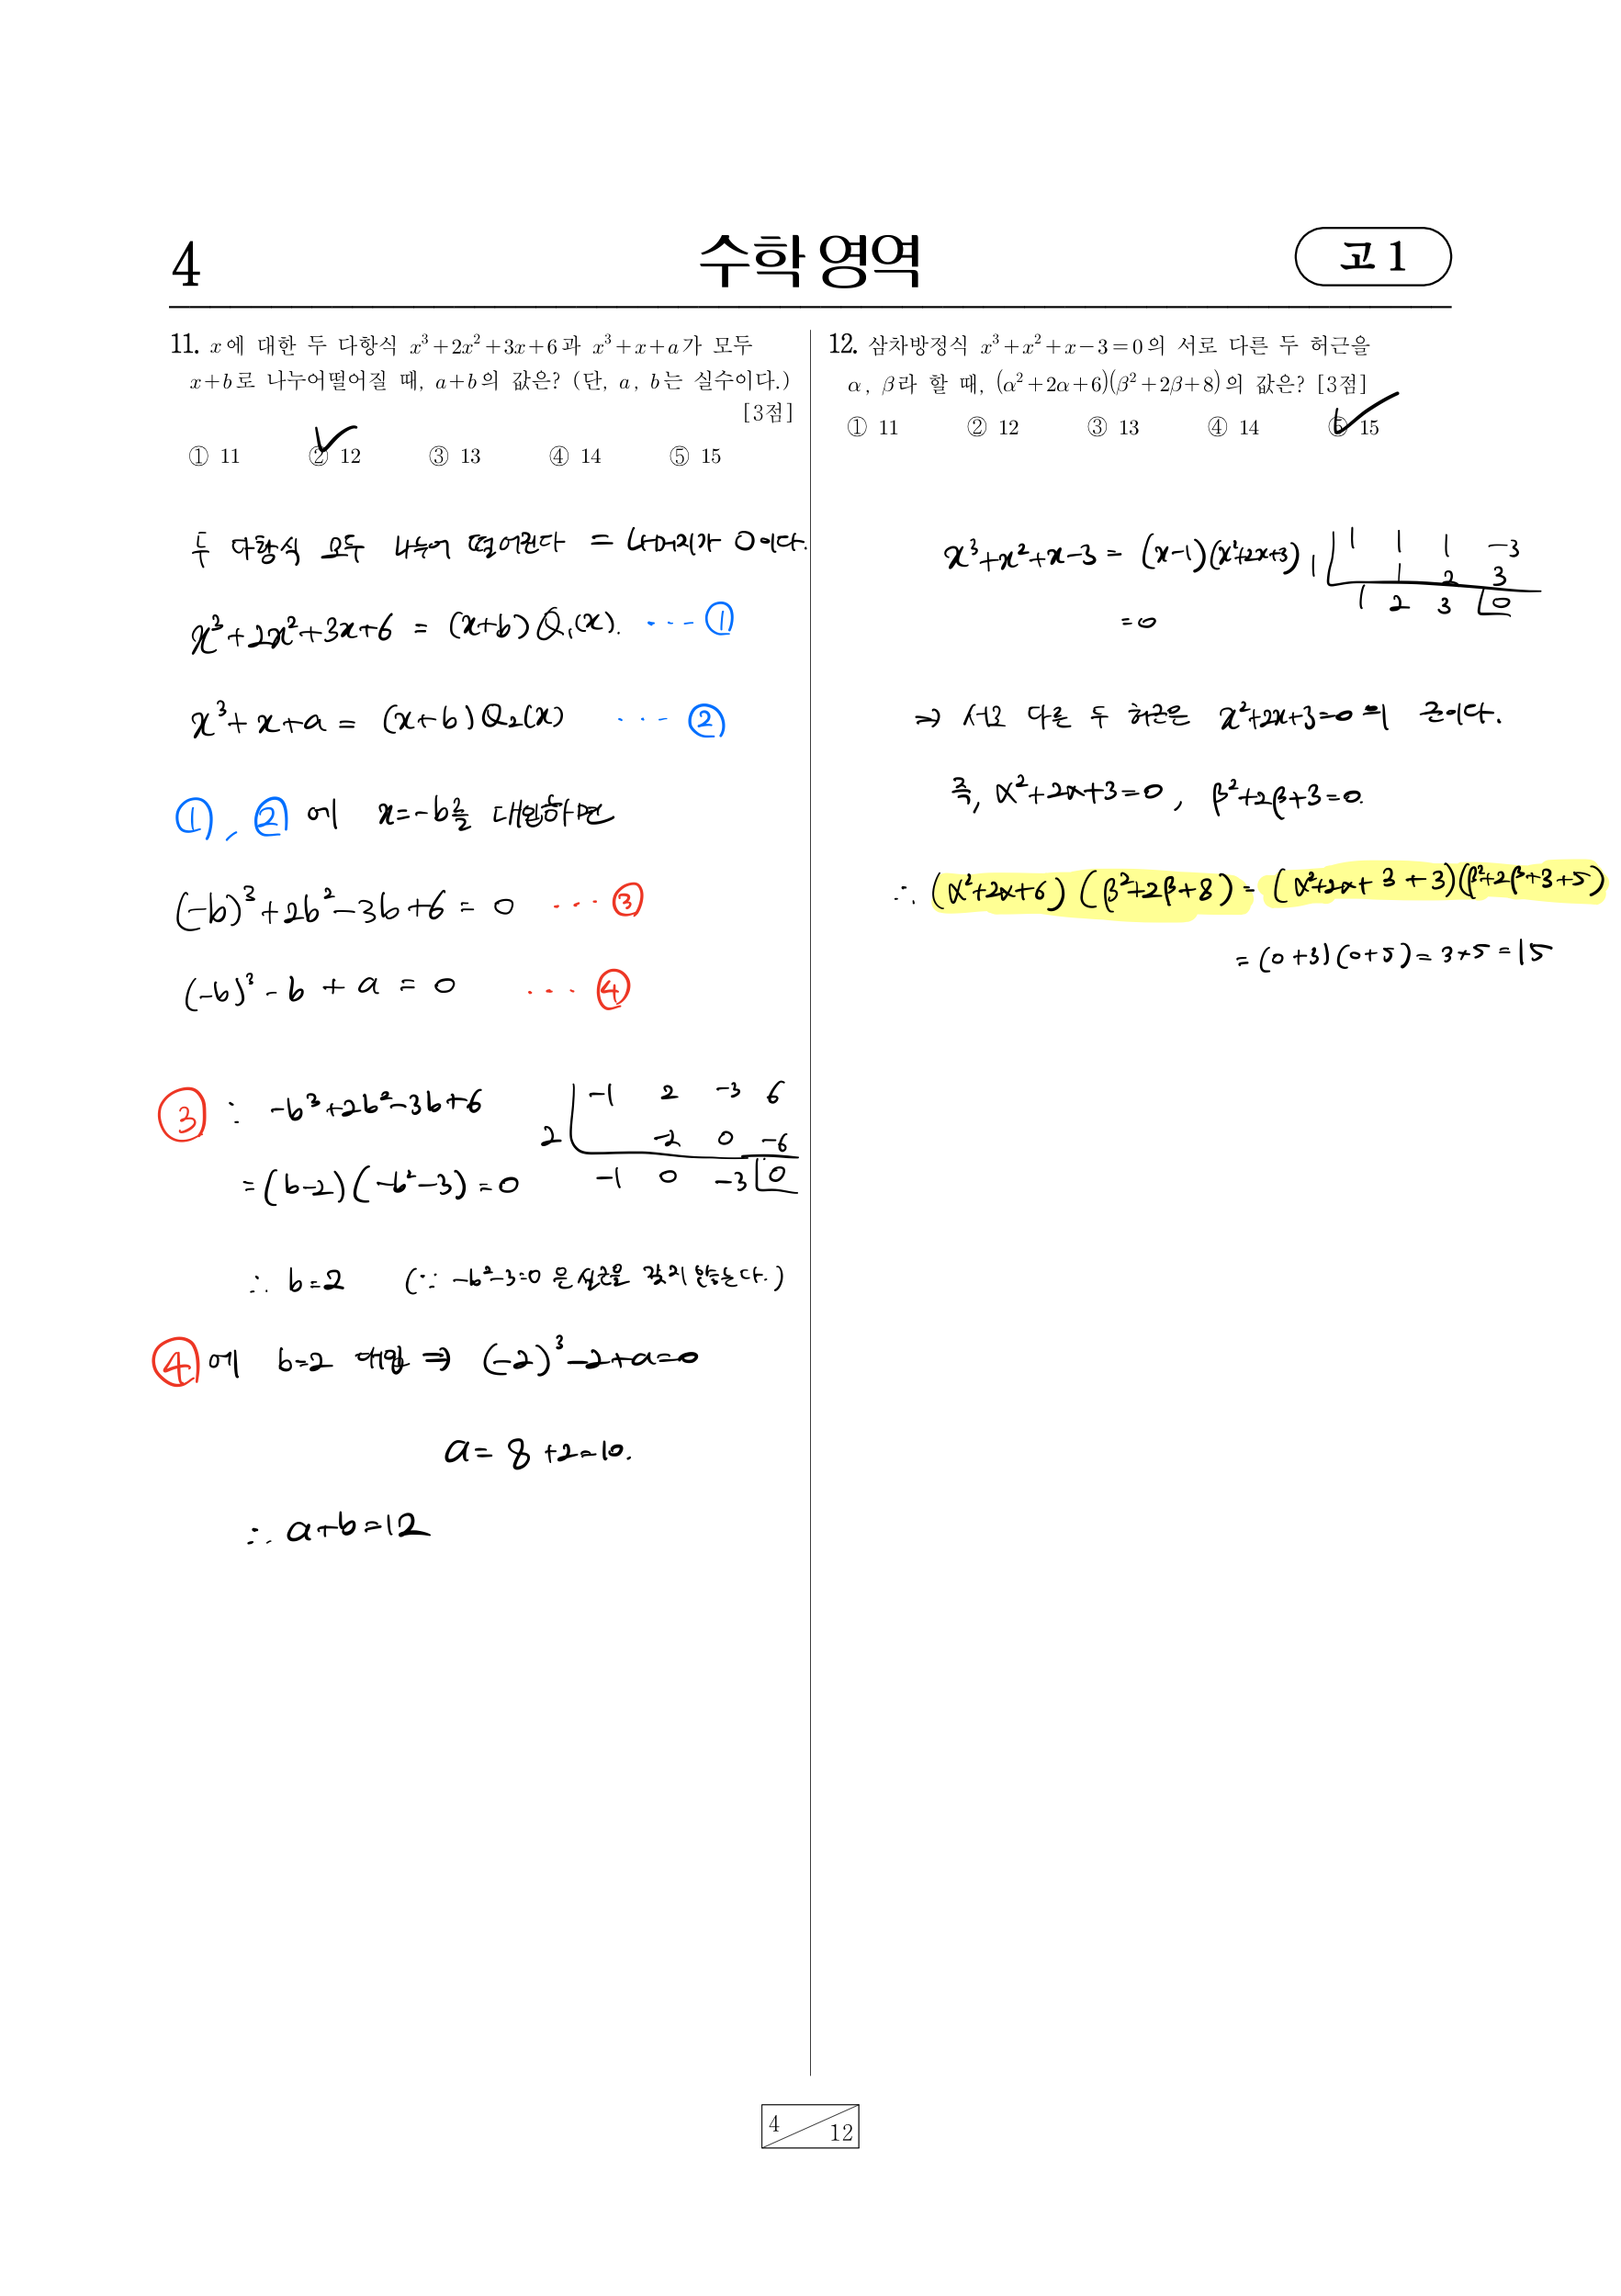 4
수학 영역
고 1
11. x에 대한 두 다항식 x³+2x²+3x+6과 x³+x+a가 모두
x+b로 나누어떨어질 때, a+b의 값은? (단, a, b는 실수이다.)
[3점]
① 11 ② 12 ③ 13 ④ 14 ⑤ 15
두 다항식 모두 나누어 떨어진다 = 나머지가 0이다.
x³+2x²+3x+6 = (x+b)Q₁(x). ··· ①
x³+x+a = (x+b)Q₂(x) ··· ②
①, ② 에 x=-b를 대입하면
(-b)³+2b²-3b+6 = 0 ··· ③
(-b)³-b+a = 0 ··· ④
③ : -b³+2b²-3b+6
-1 2 -3 6
2 -2 0 -6
-1 0 -3 0
=(b-2)(-b²-3)=0
∴ b=2 (∵ -b²-3=0 은 실근을 갖지 않는다.)
④에 b=2 대입 ⇒ (-2)³-2+a=0
a= 8+2=10.
∴ a+b=12
12. 삼차방정식 x³+x²+x-3=0의 서로 다른 두 허근을
α, β라 할 때, (α²+2α+6)(β²+2β+8)의 값은? [3점]
① 11 ② 12 ③ 13 ④ 14 ⑤ 15
x³+x²+x-3 = (x-1)(x²+2x+3)
=0
1 1 1 -3
1 1 2 3
1 2 3 0
⇒ 서로 다른 두 허근은 x²+2x+3=0의 근이다.
즉, α²+2α+3=0, β²+2β+3=0.
∴ (α²+2α+6)(β²+2β+8) = (α²+2α+3+3)(β²+2β+3+5)
= (0+3)(0+5)= 3×5=15
4
12